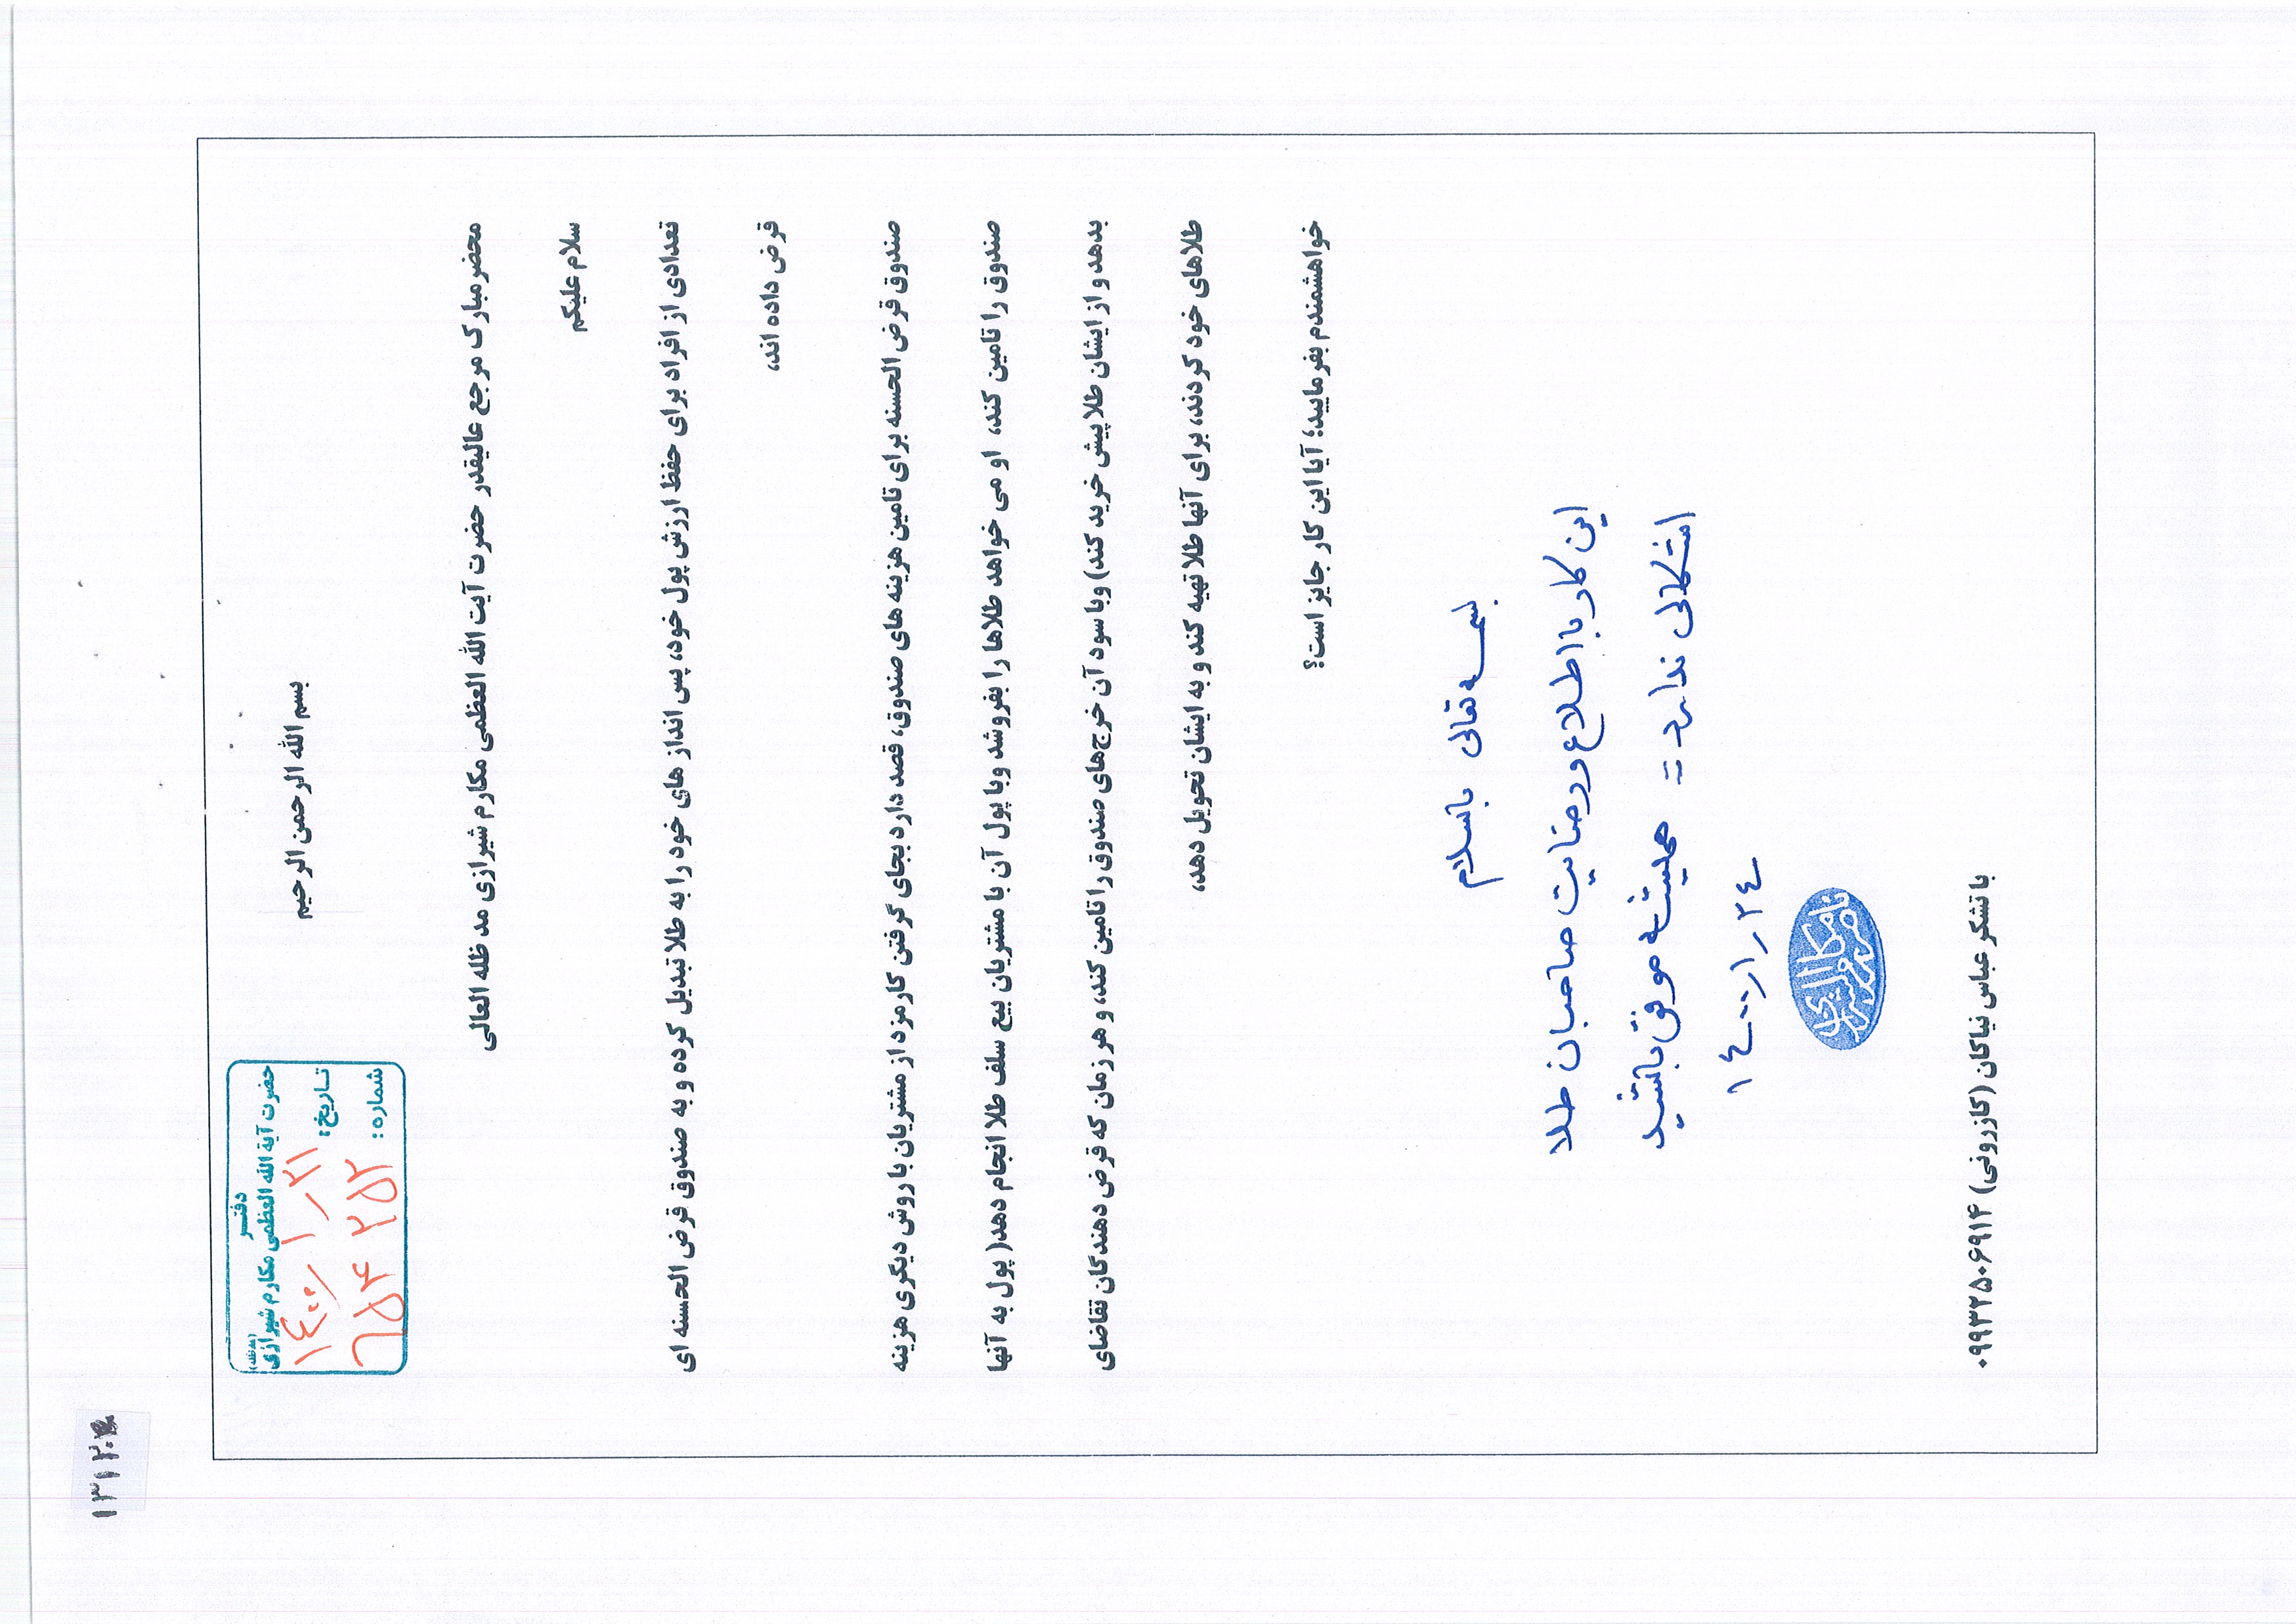 ۱۳۱۲۰۴
دفتر
حضرت آیة الله العظمی مکارم شیرازی (مدظله)
تاریخ: ۱۴۰۰/۱/۲۱
شماره: ۶۵۴۲۵۲
بسم الله الرحمن الرحیم
محضر مبارک مرجع عالیقدر حضرت آیت الله العظمی مکارم شیرازی مد ظله العالی
سلام علیکم
تعدادی از افراد برای حفظ ارزش پول خود، پس انداز های خود را به طلا تبدیل کرده و به صندوق قرض الحسنه ای
قرض داده اند،
صندوق قرض الحسنه برای تامین هزینه های صندوق، قصد دارد بجای گرفتن کارمزد از مشتریان با روش دیگری هزینه
صندوق را تامین کند، او می خواهد طلاها را بفروشد و با پول آن با مشتریان بیع سلف طلا انجام دهد( پول به آنها
بدهد و از ایشان طلا پیش خرید کند) و با سود آن خرج‌های صندوق را تامین کند، و هر زمان که قرض دهندگان تقاضای
طلاهای خود کردند، برای آنها طلا تهیه کند و به ایشان تحویل دهد،
خواهشمندم بفرمایید؛ آیا این کار جایز است؟
بسمه تعالی باسلام
این کار با اطلاع و رضایت صاحبان طلا
اشکالی ندارد = همیشه موفق باشید
۱۴۰۰/۱/۲۴
ناصر مکارم شیرازی
با تشکر عباس نیاکان (کازرونی) ۰۹۹۳۲۲۵۰۶۹۱۴